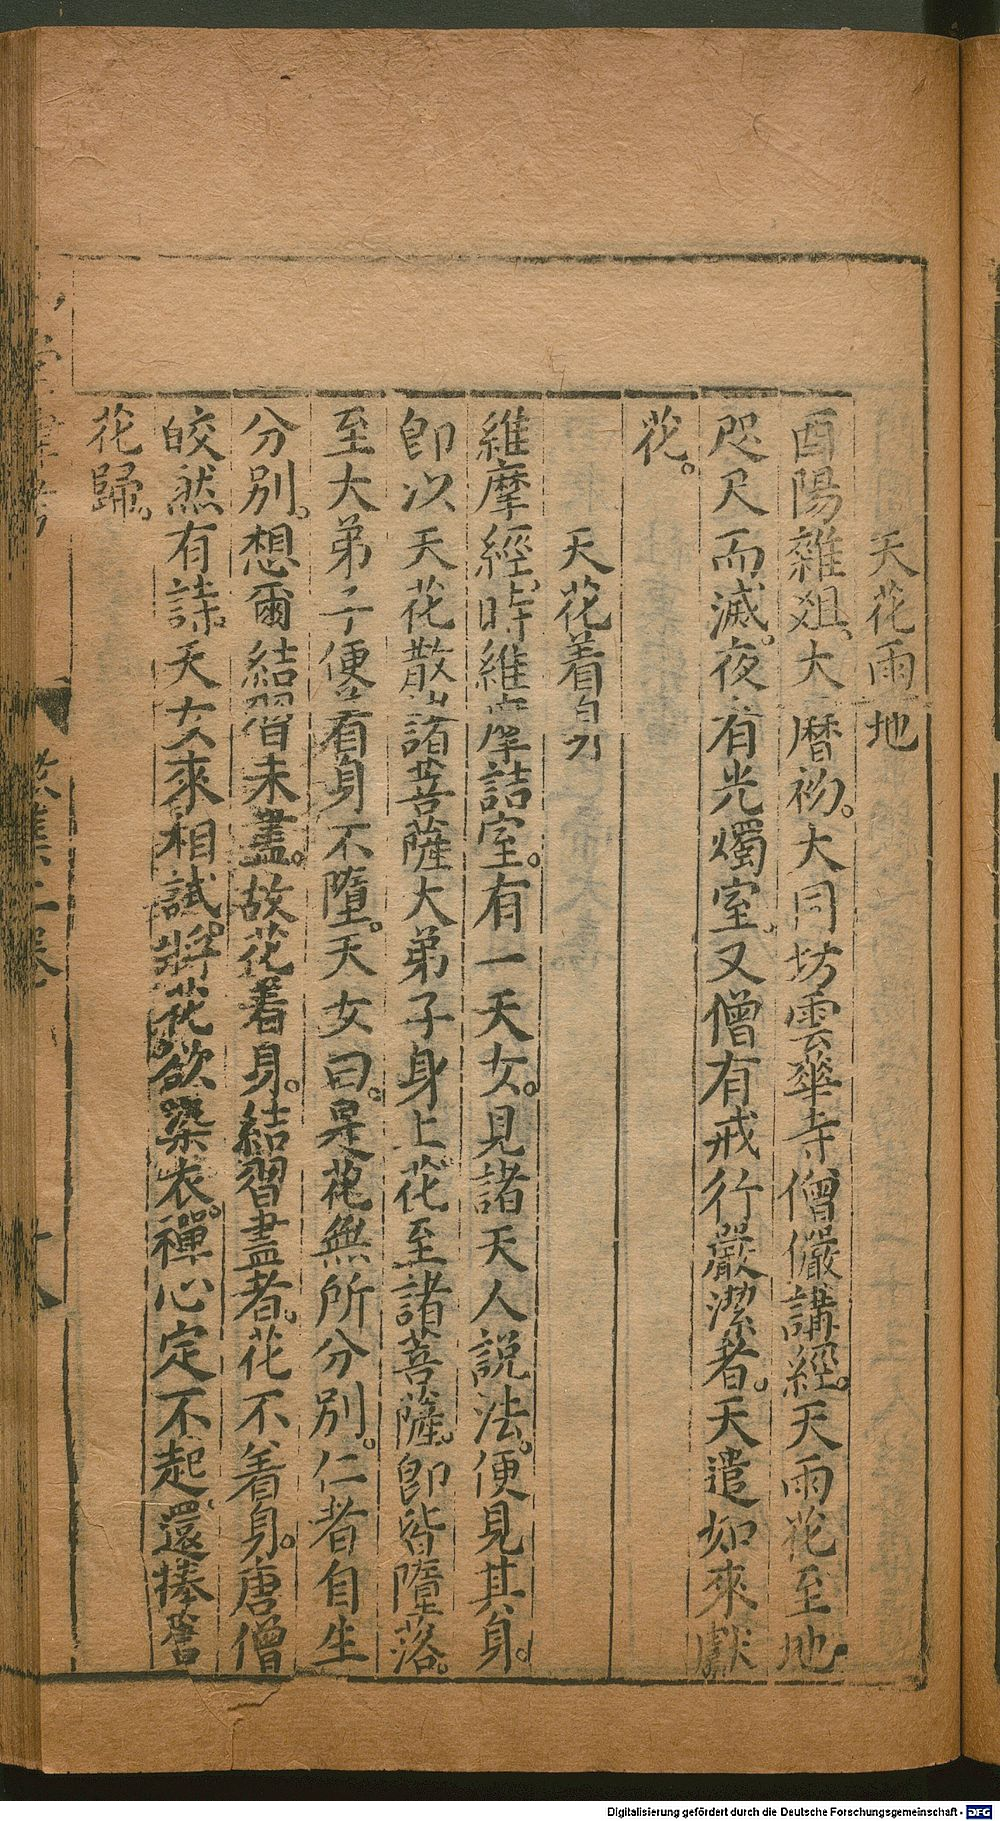 天花雨地
酉陽雜爼、大曆初。大同坊雲華寺僧儼講經。天雨花至地
咫尺而滅。夜有光燭室。又僧有戒行嚴潔者。天遣如來獻
花。
天花着身
維摩經、時維摩詰室。有一天女。見諸天人說法。便見其身。
卽以天花散諸菩薩大弟子身上。花至諸菩薩。卽皆墮落。
至大弟子便着身不墮。天女曰。是花無所分别。仁者自生
分别。想爾結習未盡。故花着身。結習盡者。花不着身。唐僧
皎然有詩。天女來相試。將花欲染衣。禪心定不起。還捧舊
花歸。
Digitalisierung gefördert durch die Deutsche Forschungsgemeinschaft - DFG